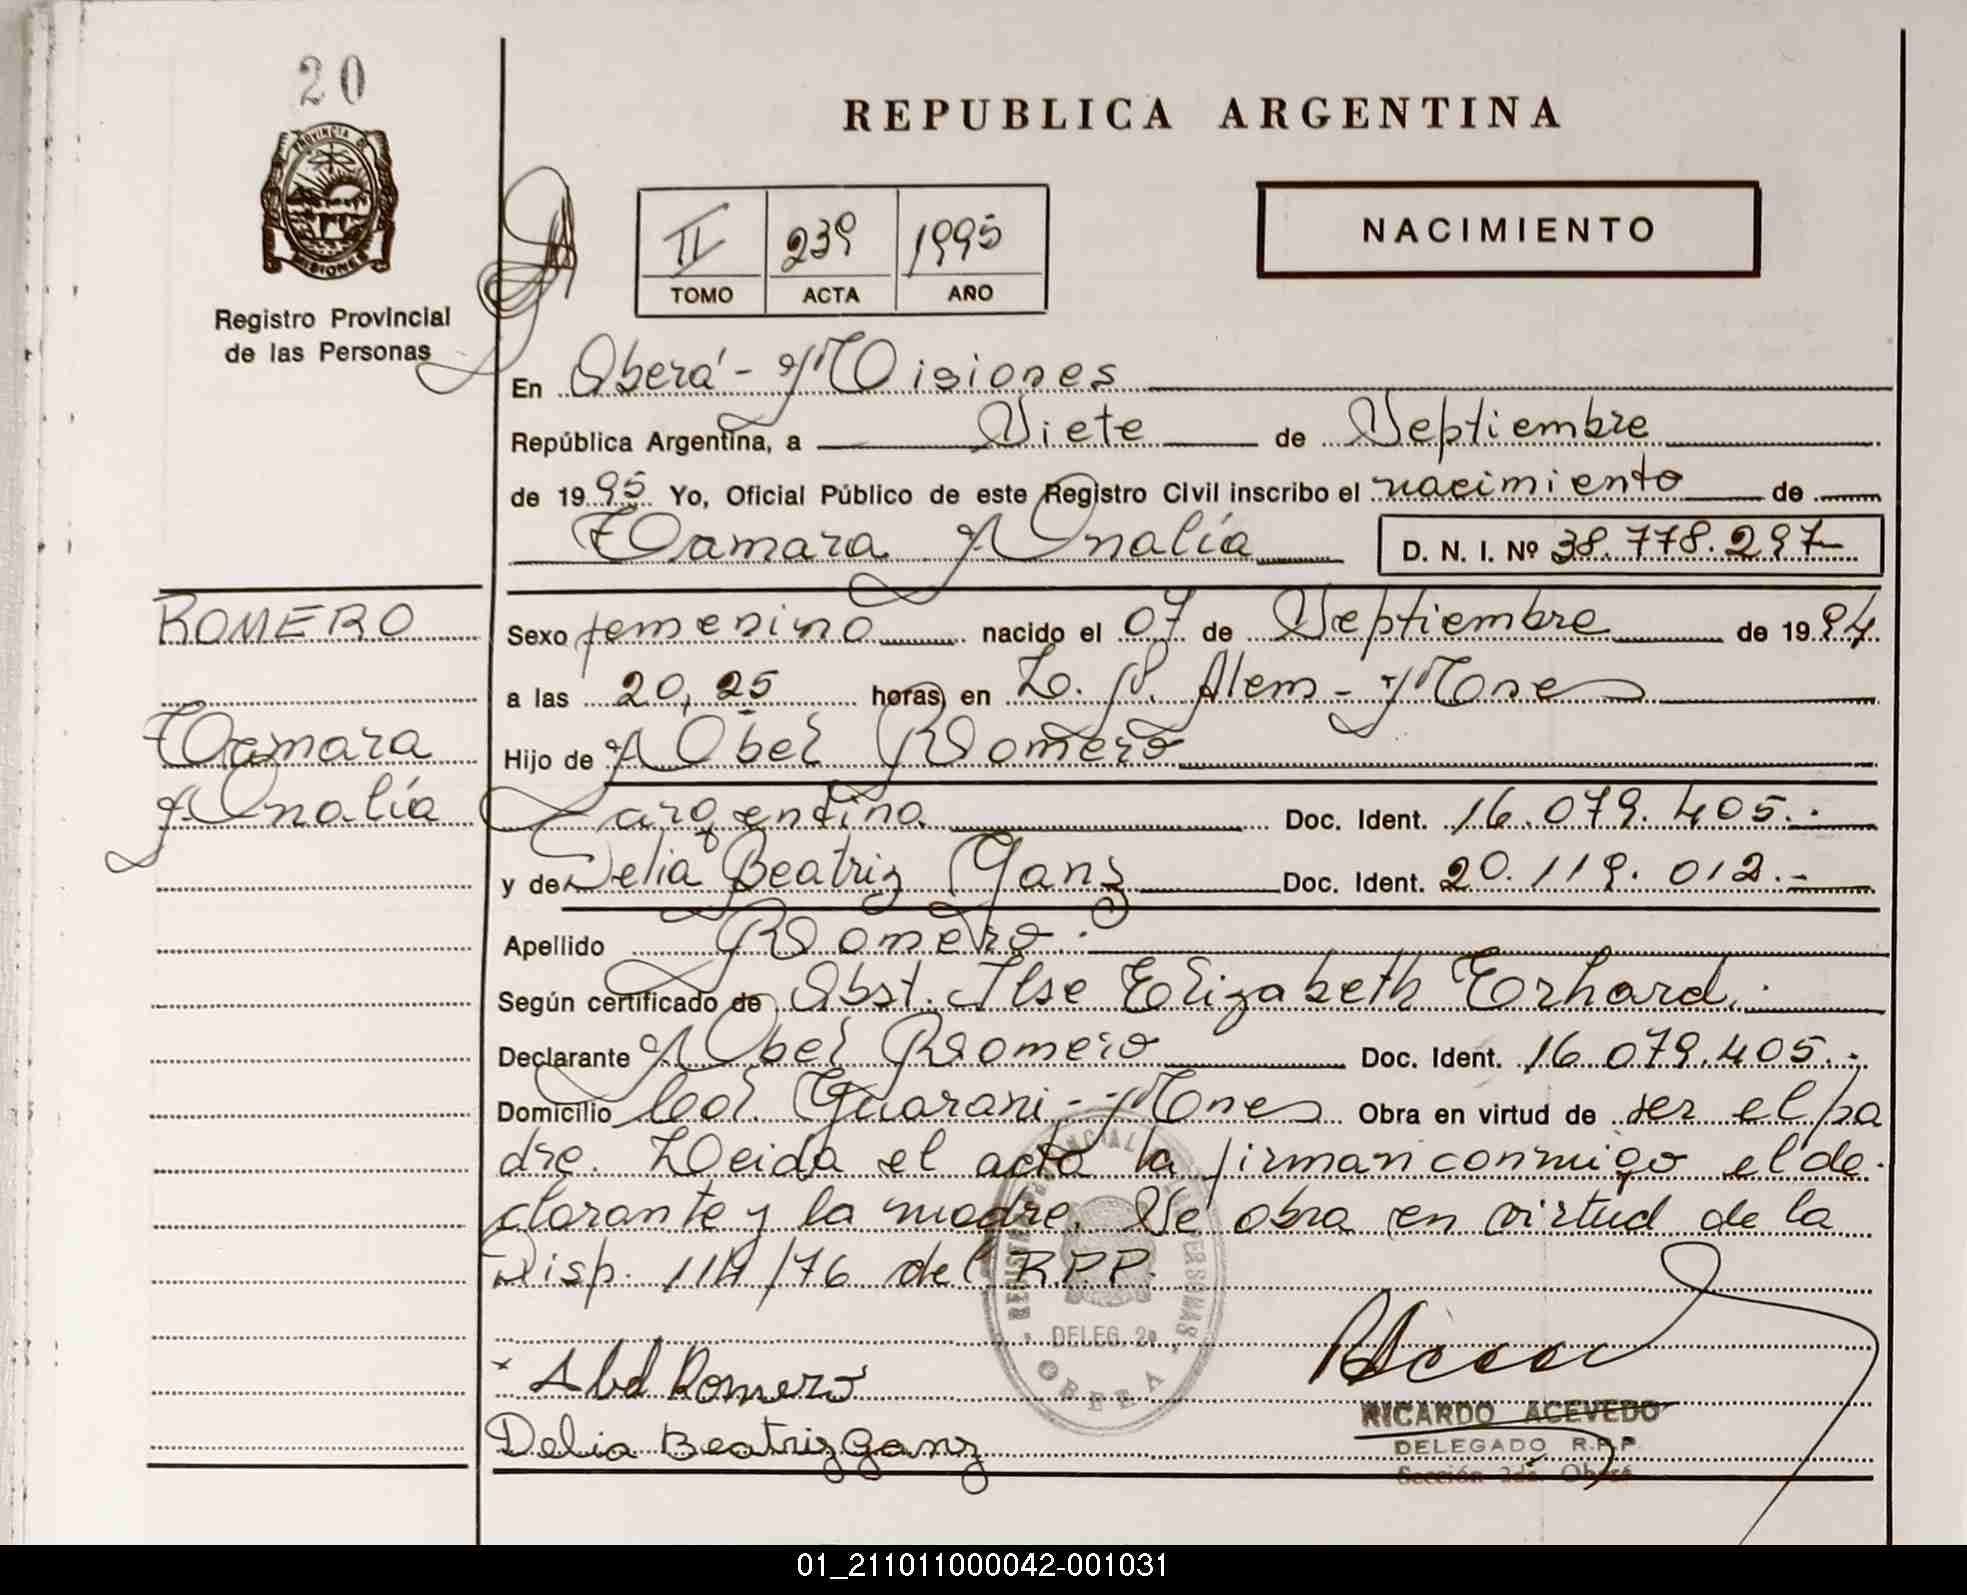 20
PROVINCIA DE
MISIONES
Registro Provincial
de las Personas
REPUBLICA ARGENTINA
II 239 1995
TOMO ACTA AÑO
NACIMIENTO
En Oberá - Misiones
República Argentina, a Siete de Septiembre
de 1995 Yo, Oficial Público de este Registro Civil inscribo el nacimiento de
Tamara Analía D. N. I. Nº 38.778.297
ROMERO
Tamara
Analía
Sexo femenino nacido el 07 de Septiembre de 1994
a las 20,25 horas en L. N. Alem - Mnes
Hijo de Abel Romero
argentina Doc. Ident. 16.079.405.-
y de Delia Beatriz Ganz Doc. Ident. 20.119.012.-
Apellido Romero.
Según certificado de Obst. Ilse Elizabeth Erhard.
Declarante Abel Romero Doc. Ident. 16.079.405.-
Domicilio Col. Guarani - Mnes Obra en virtud de ser el pa
dre. Leida el acta la firman conmigo el de-
clarante y la madre. Se obra en virtud de la
Disp. 114/76 del R.P.P.
DELEG. 2a
Abel Romero
Delia Beatriz Ganz
RICARDO ACEVEDO
DELEGADO R.P.P.
Sección 2da. Oberá
01_211011000042-001031